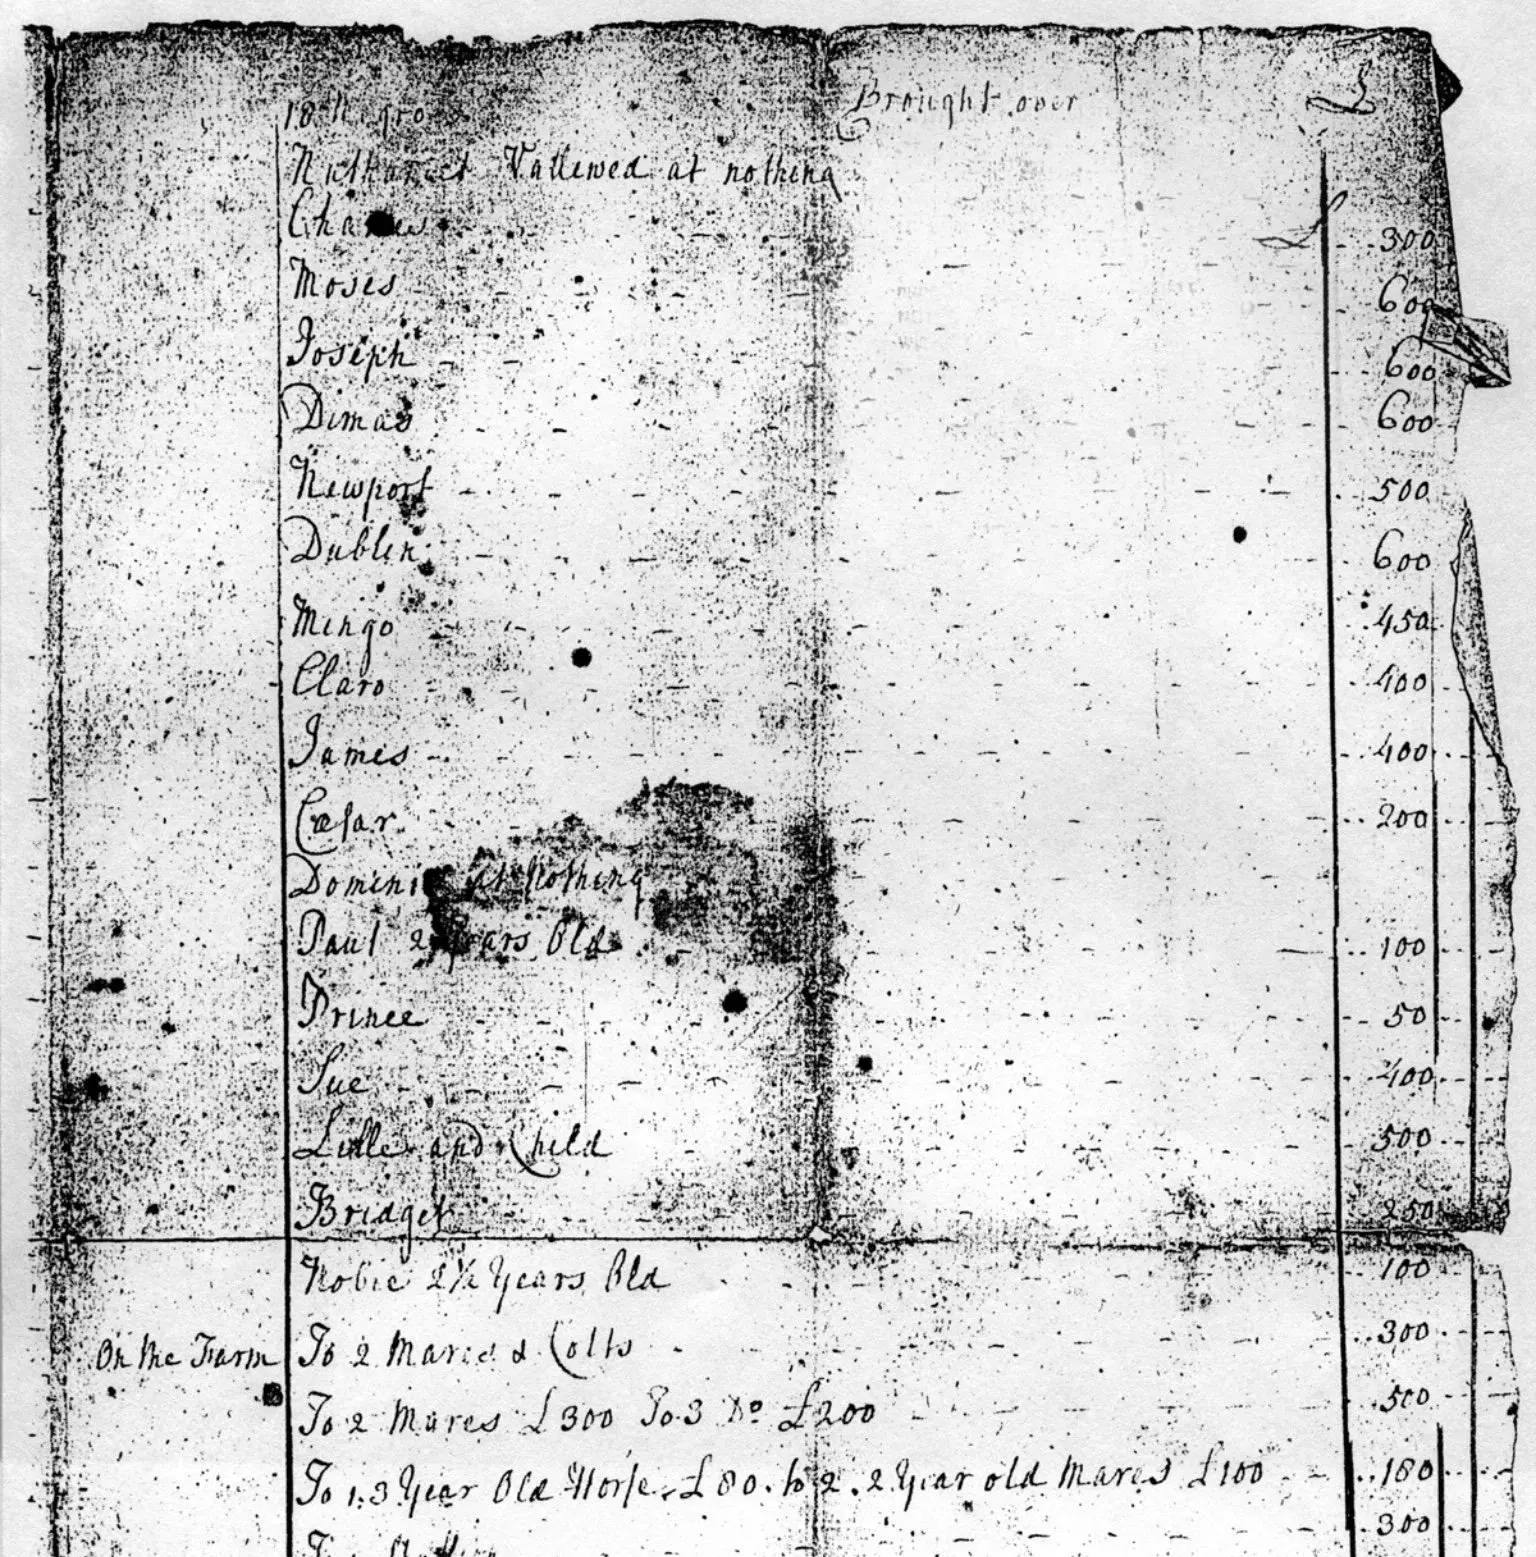 18 Negro Brought over £
Nathaniel Vallewed at nothing
Charles £ 300
Moses 600
Joseph 600
Dimas 600
Newport 500
Dublin 600
Mingo 450
Claro 400
James 400
Cæsar 200
at Nothing
Paul 2 Years Old 100
Prince 50
Sue 400
and Child 500
Bridget 250
Nobie 2½ Years Old 100
On the Farm To 2 Mares & Colts 300
To 2 Mares £300 To 3 Do £200 500
To 1. 3 Year Old Horse £80. to 2. 2 Year old Mares £100 180
300